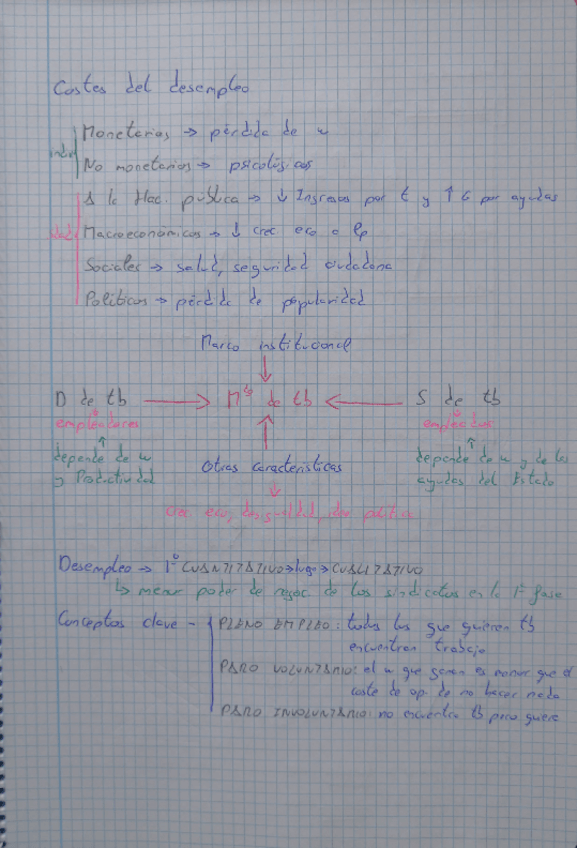 Costes del desempleo
Monetarios → pérdida de w
indiv
No monetarios → psicológicos
A la Hac. pública → ↓ Ingresos por t y ↑ G por ayudas
Macroeconómicos → ↓ crec eco a lp
Sociales → salud, seguridad ciudadana
Políticos → pérdida de popularidad
Marco institucional
D de tb → Mdo de tb ← S de tb
empleadores
empleados
depende de w
y Productividad
Otras características
depende de w y de las
ayudas del Estado
crec eco, desigualdad,
Desempleo → 1º CUANTITATIVO → luego → CUALITATIVO
↳ menor poder de negoc de los sindicatos en la 1ª fase
Conceptos clave - PLENO EMPLEO: todos los que quieren tb
encuentran trabajo
PARO VOLUNTARIO: el w que ganan es menor que el
coste de op. de no hacer nada
PARO INVOLUNTARIO: no encuentra tb pero quiere